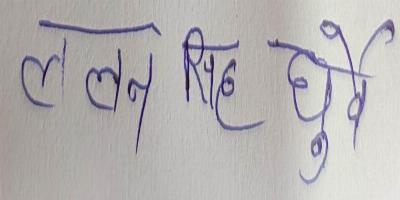 ललन सिंह धुर्वे